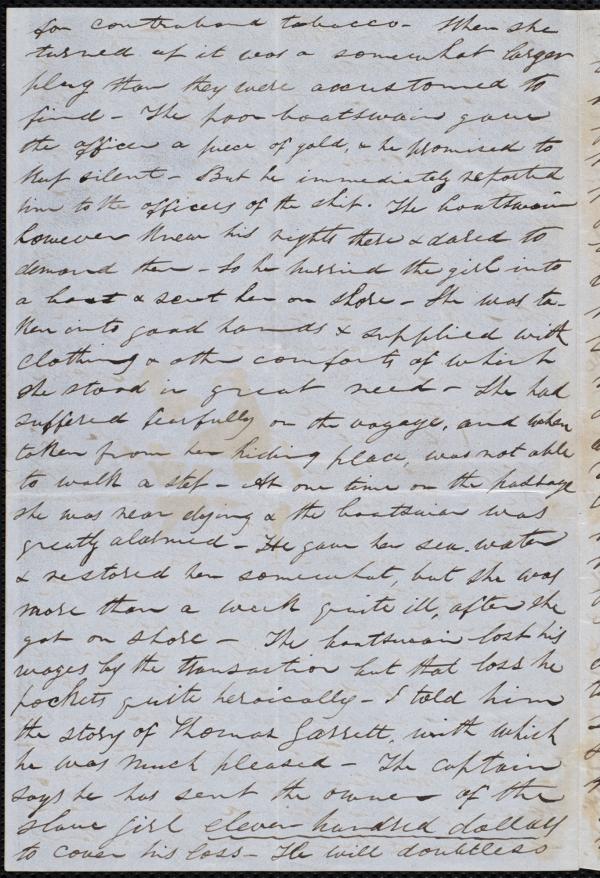 for contraband tobacco - When she
turned up it was a somewhat larger
plug than they were accustomed to
find - The poor boatswain gave
the officer a piece of gold, & he promised to
keep silent - But he immediately reported
him to the officers of the ship. The boatswain
however knew his rights there & dared to
demand them - So he hurried the girl into
a boat & sent her on shore - She was ta-
ken into good hands & supplied with
clothing & other comforts of which
she stood in great need - She had
suffered fearfully on the voyage, and when
taken from her hiding place, was not able
to walk a step - At one time on the passage
she was near dying & the boatswain was
greatly alarmed - He gave her sea-water
& restored her somewhat, but she was
more than a week quite ill, after she
got on shore - The boatswain lost his
wages by the transaction but that loss he
pockets quite heroically - I told him
the story of Thomas Garrett, with which
he was much pleased - The captain
says he has sent the owner of the
slave girl eleven hundred dollars
to cover his loss - He will doubtless